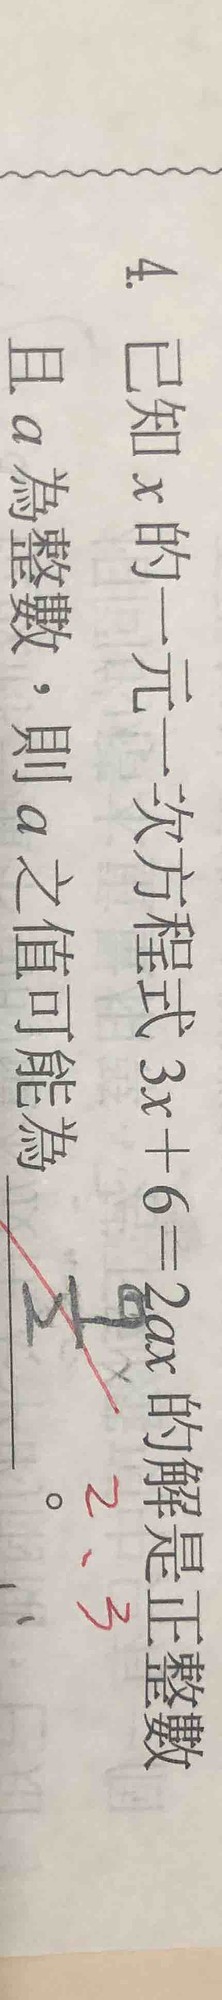 4. 已知 x 的一元一次方程式 3x+6=2ax 的解是正整數
且 a 為整數，則 a 之值可能為
。
2、3